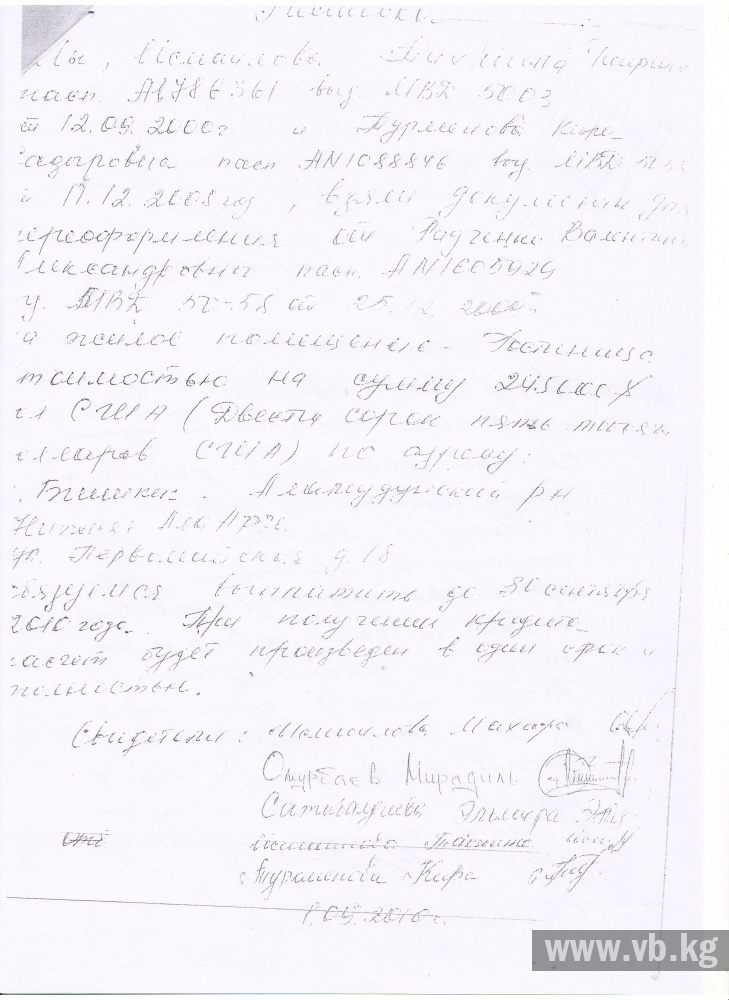 Расписка.
Мы, Исмаилова
пасп. А1786361 выд. МВД 5003
от 12.09.2000г и Турманова Кира
пасп AN1088846 выд. МВД
17.12.2008 год, взяли документы для
переоформления от Радченко Валентины
лександровны пасп. AN1605929
МВД 50-58 от 25.12.2000г.
а жилое помещение - Гостиница
тоимостью на сумму 245000$
ол США (Двести сорок пять тысяч
олларов США) по адресу:
. Бишкек. Аламудунский рн
Нижняя Ала Арча
ул. Первомайская д. 18
бязуемся выплатить до 30 сентября
2010 года. При получении кредита
расчет будет произведен в один срок и
полностью.
Свидетели:
Омурбаев Мирадиль
Эльмира
Турманова Кира
1.09.2010г.
www.vb.kg